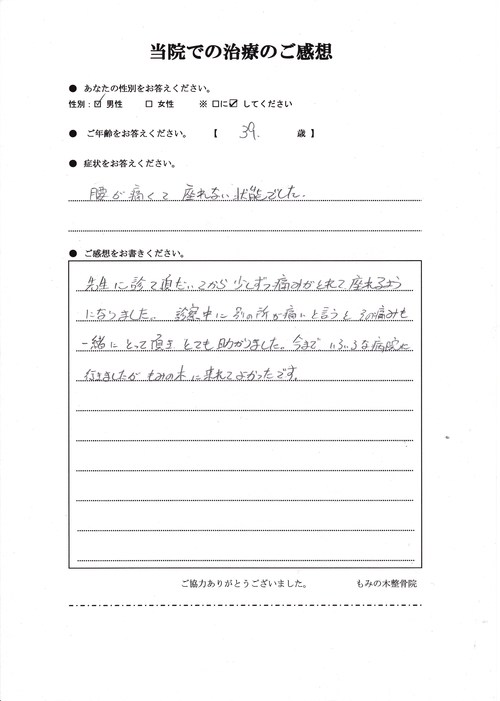 当院での治療のご感想
● あなたの性別をお答えください。
性別：☑ 男性 □ 女性 ※ □に☑ してください
● ご年齢をお答えください。 【 39. 歳 】
● 症状をお答えください。
腰が痛くて 座れない状態でした。
● ご感想をお書きください。
先生に診て頂だいてから少しずつ痛みがとれて座れるよう
になりました。 診察中に別の所が痛いと言うとその痛みも
一緒にとって頂きとても助かりました。今までいろいろな病院に
行きましたがもみの木に来れてよかったです。
ご協力ありがとうございました。 もみの木整骨院